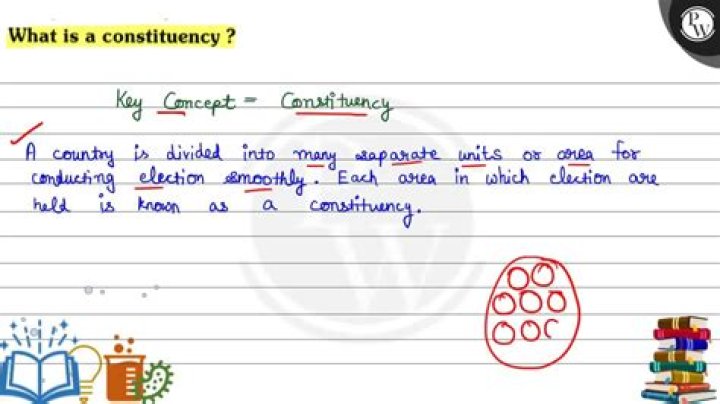 What is a constituency ?
PW
Key Concept = Constituency
A country is divided into many saparate units or area for
conducting election smoothly. Each area in which election are
held is known as a constituency.